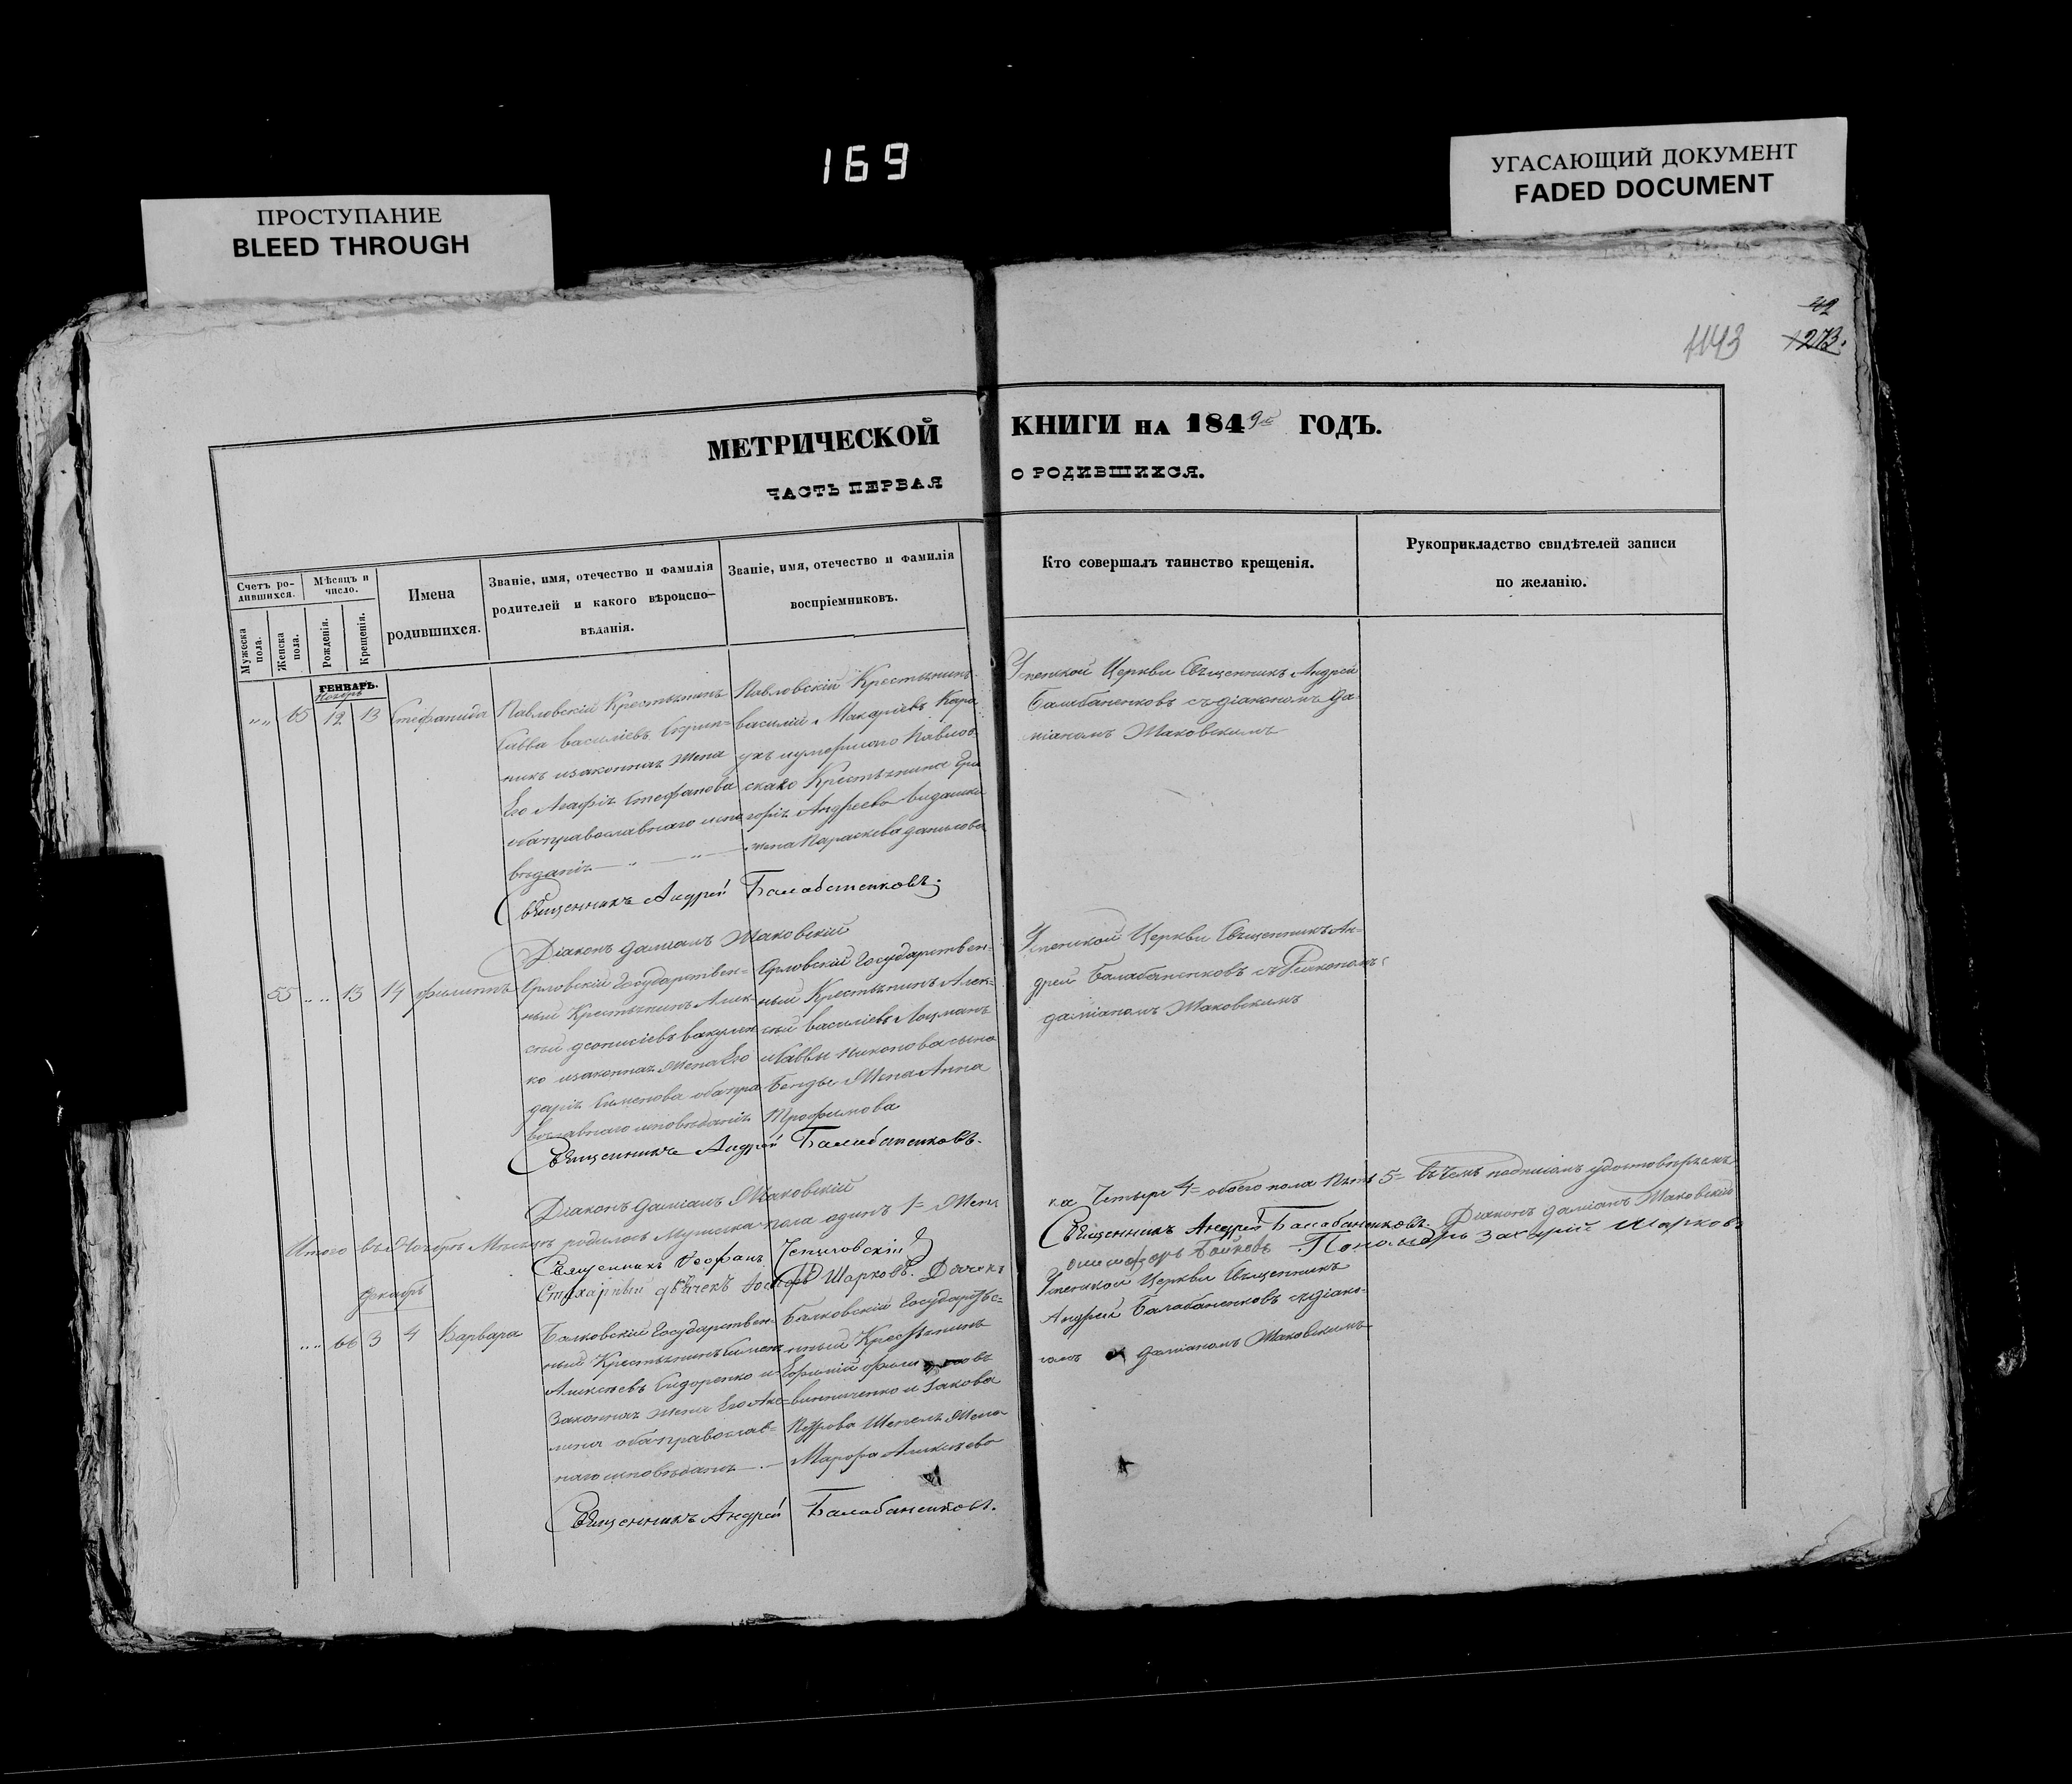 169
ПРОСТУПАНИЕ
BLEED THROUGH
УГАСАЮЩИЙ ДОКУМЕНТ
FADED DOCUMENT
42
1143
1273.
МЕТРИЧЕСКОЙ КНИГИ НА 1849 ГОДЪ.
ЧАСТЬ ПЕРВАЯ О РОДИВШИХСЯ.
Счетъ ро-
дившихся.
Мѣсяцъ и
число.
Мужеска
пола.
Женска
пола.
Рожденія.
Крещенія.
Имена
родившихся.
Званіе, имя, отечество и фамилія
родителей и какого вѣроиспо-
вѣданія.
Званіе, имя, отечество и фамилія
воспріемниковъ.
Кто совершалъ таинство крещенія.
Рукоприкладство свидѣтелей записи
по желанію.
ГЕНВАРЬ.
Ноябрь
„ „ 65 12 13 Стефанида
Павловскій Крестьянинъ
Савва Василіевъ
никъ изаконная жена
Его Агафія Стефанова
оба православнаго испо
веданія
Павловскій Крестьянинъ
василій Макаріевъ Кара
умершаго Павлов
скаго Крестьянина Гри
горія Андреева
жена Параскева данилова
Успенской Церкви Священникъ Андрей
Балабаненковъ съ діакономъ Да
міаномъ Маковскимъ
Священникъ Андрей Балабаненковъ.
Діаконъ Даміанъ Маковскій
55 „ „ 13 14 Филиппъ
Орловскій Государствен-
ный Крестьянинъ Алек-
сѣй деонисіевъ вакулен
ко изаконная жена Его
дарія Симеонова оба пра
вославнаго исповѣданія
Орловскій Государствен-
ный Крестьянинъ Алек-
сѣй василіевъ Лоцманъ
и Саввы Никонова сына
Бенды Жена Анна
Трофимова
Успенской Церкви Священникъ Ан-
дрей Балабаненковъ съ Діакономъ
даміаномъ Маковскимъ
Священникъ Андрей Балабаненковъ.
Діаконъ Даміанъ Маковскій
Итого въ Ноябрѣ Мѣсяцѣ родилось Мужеска пола одинъ 1= Женс
ка Четыре 4= обоего пола Пять 5= въ чемъ подписомъ удостовѣряемъ
Священникъ Андрей Балабаненковъ. Діаконъ Даміанъ Маковскій
Священникъ Феофанъ
Стихарный дьячекъ Іосифъ Шарковъ. Дьячекъ
Бойковъ Пономарь Захарій Шарковъ
Декабрь
„ „ 66 3 4 Варвара
Балковскій Государствен-
ный Крестьянинъ Симеон
Алексѣевъ Сидоренко и
Законная жена Его Аку-
лина оба православ-
наго исповѣданія
Балковскій Государстве-
нный Крестьянинъ
Ефимій
винниченко и Іакова
Петрова Шепеля Жена
Марфа Алексѣева
Успенской Церкви Священникъ
Андрей Балабаненковъ съ діако-
номъ Даміаномъ Маковскимъ
Священникъ Андрей Балабаненковъ.